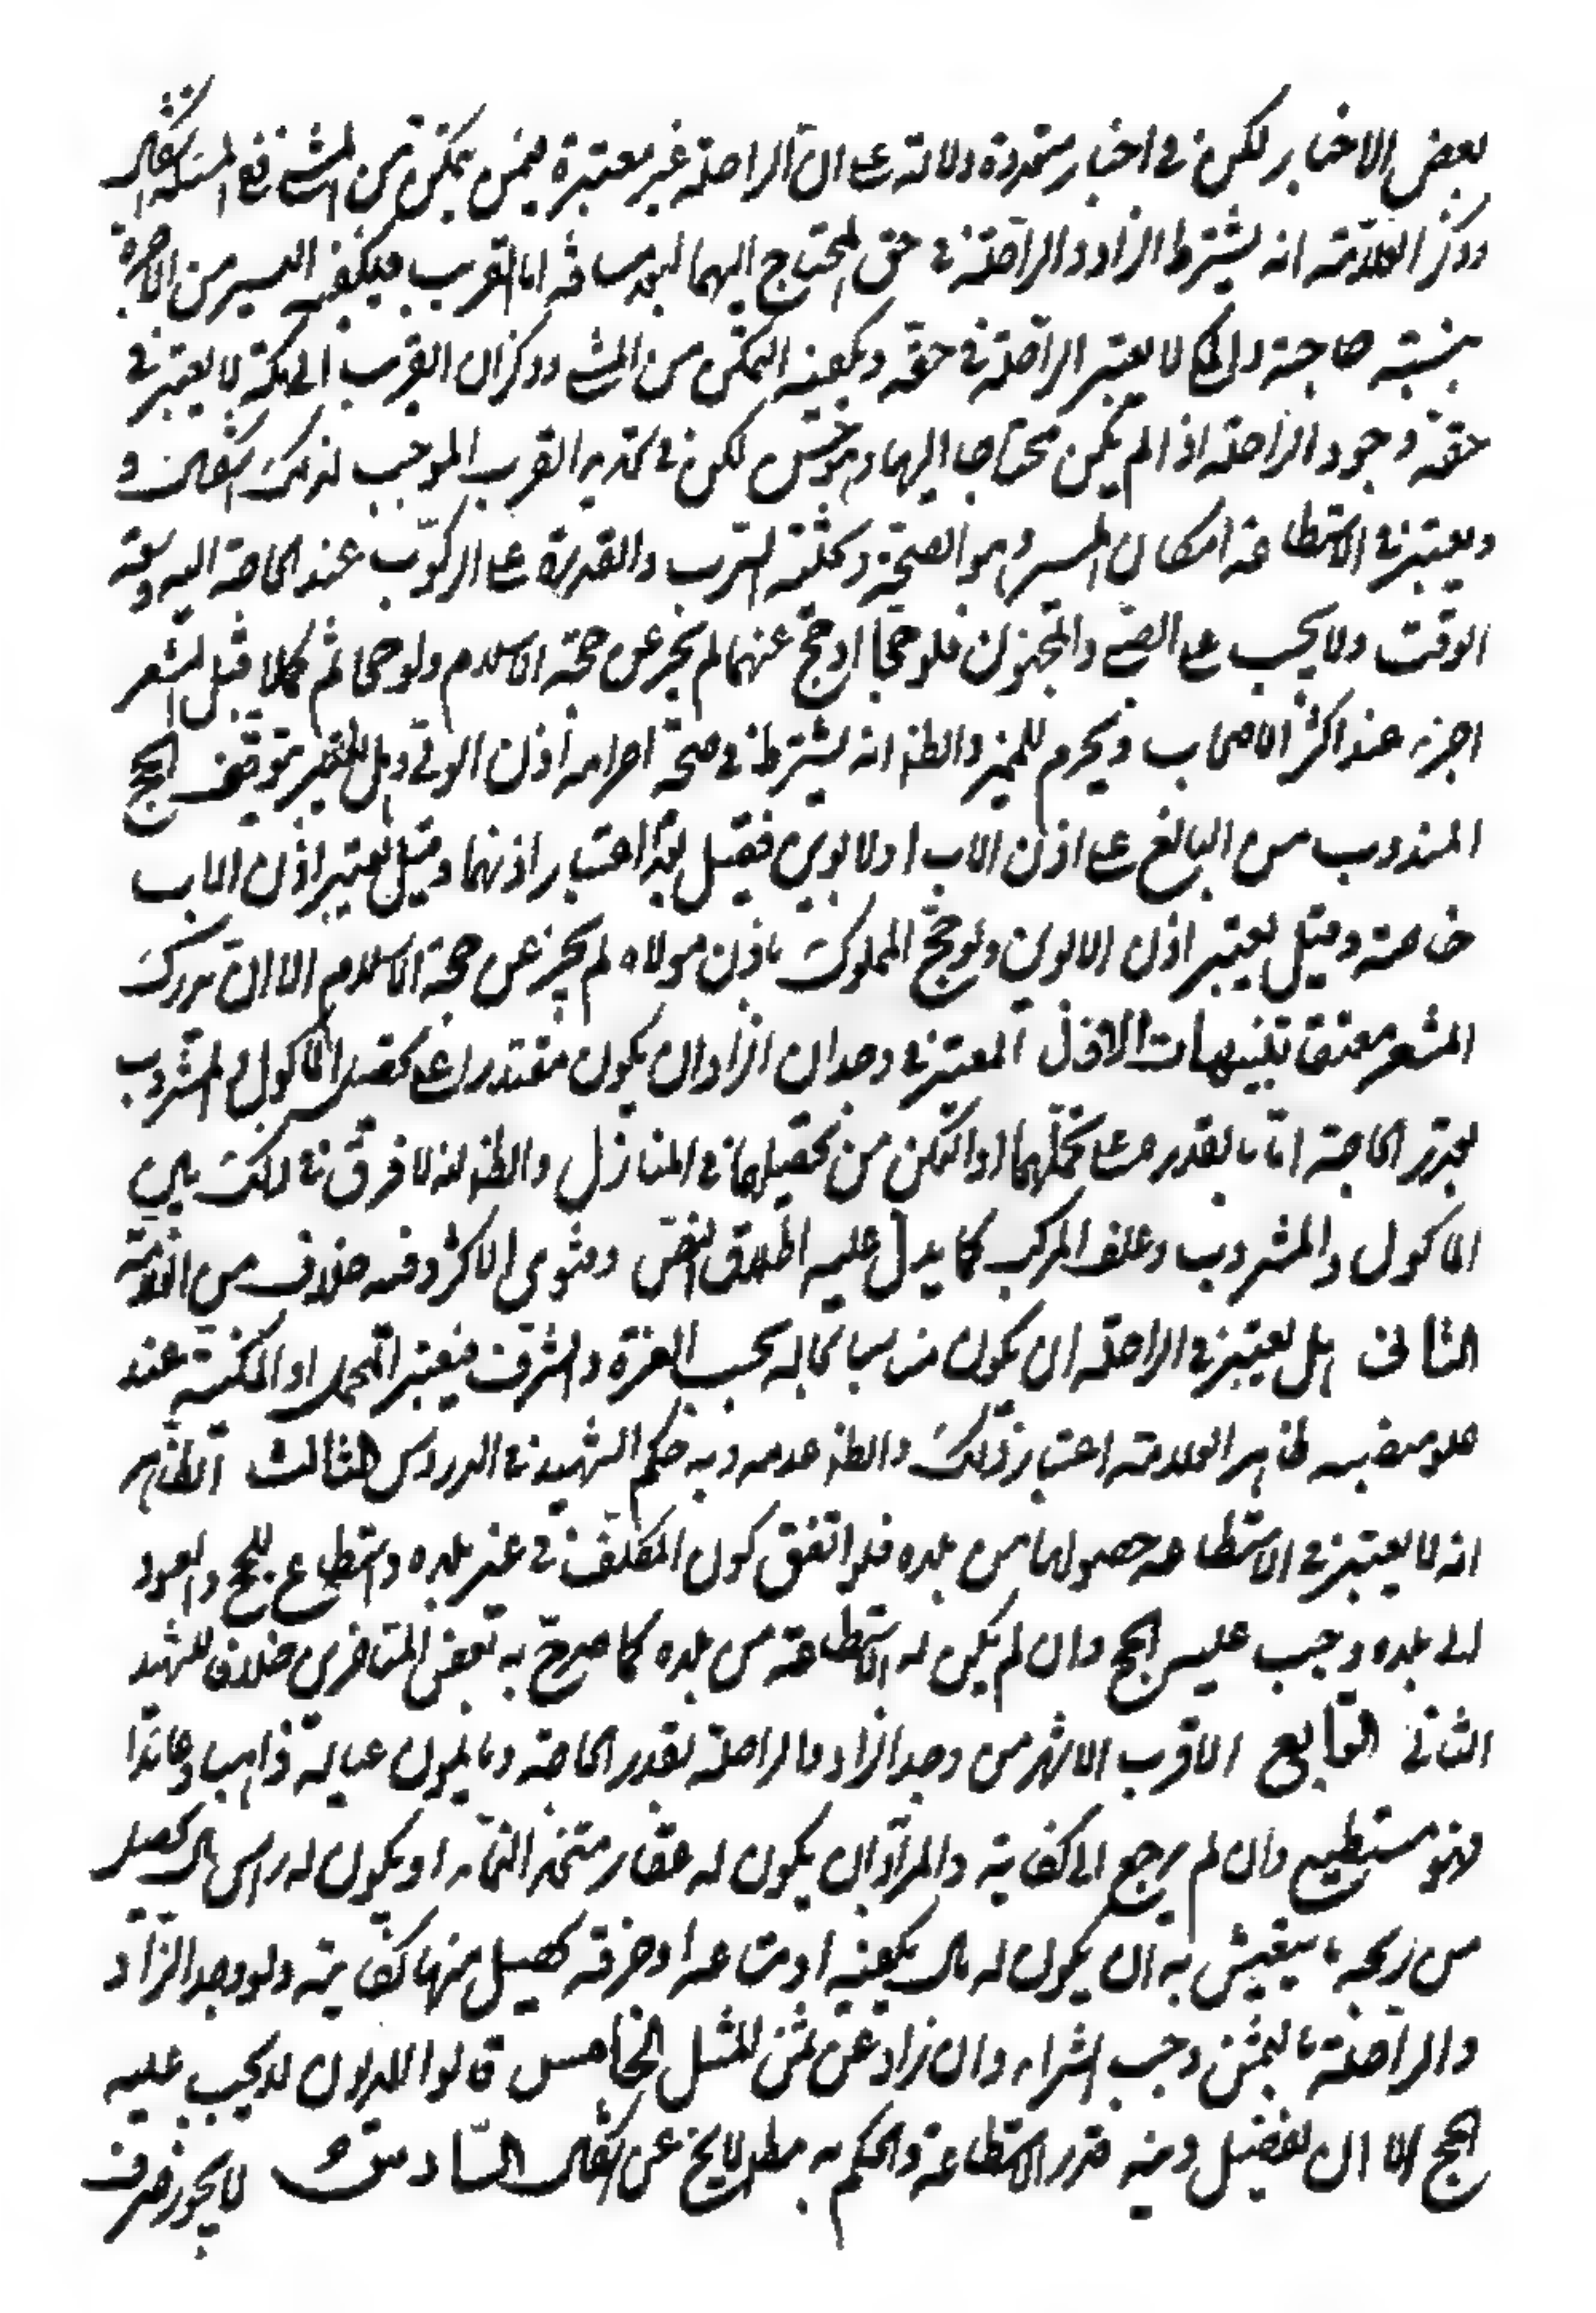 بعض الاخبار لكن في اخبار متعددة دلالة على ان الراحلة غير معتبرة فيمن يتمكن من المشي ففي المسئلة اشكال
وذكر العلامة انه يشترط الزاد والراحلة في حق المحتاج اليهما لبعد مسافته اما القريب فيكفيه اليسير من الاجرة
بنسبة حاجته والمكي لا يعتبر الراحلة في حقه ويكفيه التمكن من المشي وذكر ان القريب الى مكة لا يعتبر في
حقه وجود الراحلة اذا لم يكن محتاجا اليها وهو حسن لكن في تحديد القرب الموجب لذلك اشكال و
ويعتبر في الاستطاعة امكان المسير وهو الصحة وتخلية السرب والقدرة على الركوب عند الحاجة اليه وسعة
الوقت ولا يجب على الصبي والمجنون فلو حجا او حج عنهما لم يجز عن حجة الاسلام ولو حجا ثم كملا قبل المشعر
اجزء عند اكثر الاصحاب ويحرم المميز والظ انه يشترط في صحة احرامه اذن الولي وهل يتوقف الحج
المندوب من البالغ على اذن الاب او الابوين فقيل بعدم اعتبار اذنهما وقيل يعتبر اذن الاب
خاصة وقيل يعتبر اذن الابوين ولو حج المملوك باذن مولاه لم يجز عن حجة الاسلام الا ان يدرك
المشعر معتقا تنبيهات الاول المعتبر في وجدان الزاد ان يكون مقتدرا على تحصيل الماكول والمشروب
بقدر الحاجة اما بالقدرة على تحملهما او التمكن من تحصيلهما في المنازل والظ انه لا فرق في ذلك بين
الماكول والمشروب وعلف المركب كما يدل عليه اطلاق النص وفتوى الاكثر وفيه خلاف من العلامة
الثاني هل يعتبر في الراحلة ان يكون مناسبا لحاله بحسب العزة والشرف فيعتبر المحمل او الكنيسة عند
علو منصبه ظاهر العلامة اعتبار ذلك والظ عدمه وبه حكم الشهيد في الدروس الثالث الظاهر
انه لا يعتبر في الاستطاعة حصولها من بلده فلو اتفق كون المكلف في غير بلده واستطاع للحج والعود
الى بلده وجب عليه الحج وان لم يكن له الاستطاعة من بلده كما صرح به بعض المتاخرين خلافا للشهيد
الثاني الرابع الاقرب الاشهر من وجد الزاد والراحلة بقدر الحاجة وما يمون عياله ذاهبا وعائدا
فهو مستطيع وان لم يرجع الى كفاية والمراد ان يكون له عقار متخذ النماء او يكون له راس مال يحصل
من ربحه ما يتعيش به ان يكون له مال يكفيه او صناعة او حرفة يحصل منها كفايته ولو وجد الزاد
والراحلة بالثمن وجب الشراء وان زاد عن ثمن المثل الخامس قالوا المديون لا يجب عليه
الحج الا ان يفضل دينه قدر الاستطاعة والحكم به مطلقا لا يخ عن اشكال السادس لا يجوز صرف